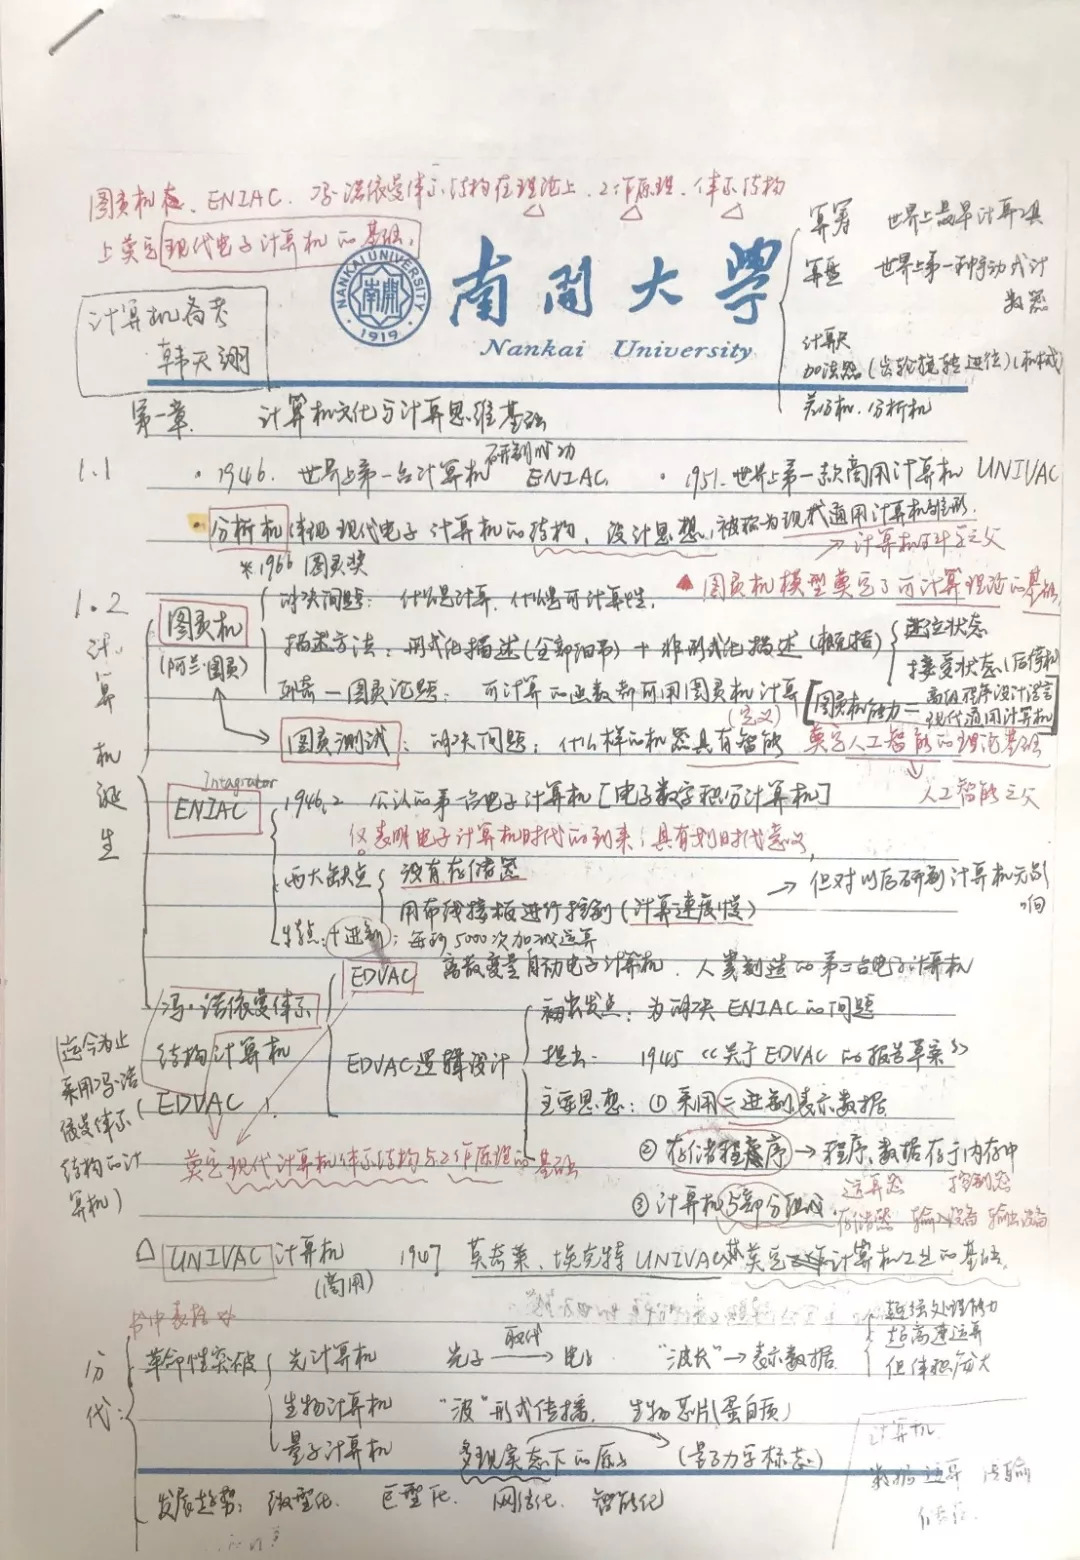 图灵机在、ENIAC、冯·诺依曼体系结构在理论上、工作原理、体系结构
上奠定现代电子计算机的基础。
算筹 世界上最早计算工具
算盘 世界上第一种手动式计
数器
计算尺
加法器(齿轮旋转进位)(机械)
差分机、分析机
计算机备考
韩天翊
NANKAI UNIVERSITY
南開
·1919·
南開大學
Nankai University
第一章. 计算机文化与计算思维基础
1.1 ·1946. 世界上第一台计算机研制成功 ENIAC. ·1951. 世界上第一款商用计算机 UNIVAC
分析机体现现代电子计算机的结构、设计思想,被称为现代通用计算机雏形.
→计算机科学之父
*1966 图灵奖
▲图灵机模型奠定了可计算理论的基础
1.2 计算机诞生
图灵机
(阿兰·图灵)
解决问题:什么是计算、什么是可计算性.
描述方法:形式化描述(全部细节)+非形式化描述(概括)
进位状态
接受状态(后停机)
邱奇—图灵论题:可计算的函数都可用图灵机计算
(定义)
[图灵机能力=高级程序设计语言
现代通用计算机]
图灵测试:解决问题:什么样的机器具有智能 奠定人工智能的理论基础
人工智能之父
Integrator
ENIAC
1946.2 公认的第一台电子计算机[电子数字积分计算机]
仅表明电子计算机时代的到来;具有划时代意义,
两大缺点 没有存储器
用布线接板进行控制(计算速度慢)
→但对以后研制计算机无影
响
特点:(十进制);每秒5000次加减运算
冯·诺依曼体系
结构计算机
EDVAC
EDVAC 离散变量自动电子计算机、人类制造的第二台电子计算机
EDVAC逻辑设计
出发点:为解决ENIAC的问题
提出: 1945 《关于EDVAC的报告草案》
主要思想:①采用二进制表示数据
②存储程序→程序、数据存于内存中
③计算机5部分组成
运算器 控制器
存储器 输入设备 输出设备
(迄今为止
采用冯·诺
依曼体系
结构的计
算机)
奠定现代计算机体系结构与工作原理的基础
△ UNIVAC 计算机
(商用)
1947 莫奇莱、埃克特 UNIVAC 奠定计算机工业的基础.
分代:
书中表格
革命性突破
光计算机 光子 取代→ 电子 "波长"→表示数据
超强处理能力
超高速运算
但体积庞大
生物计算机 "波"形式传播. 生物芯片(蛋白质)
量子计算机 多现实态下的原子 (量子力学标志)
发展趋势:微型化. 巨型化. 网络化. 智能化
计算机.
数据运算 传输
存储